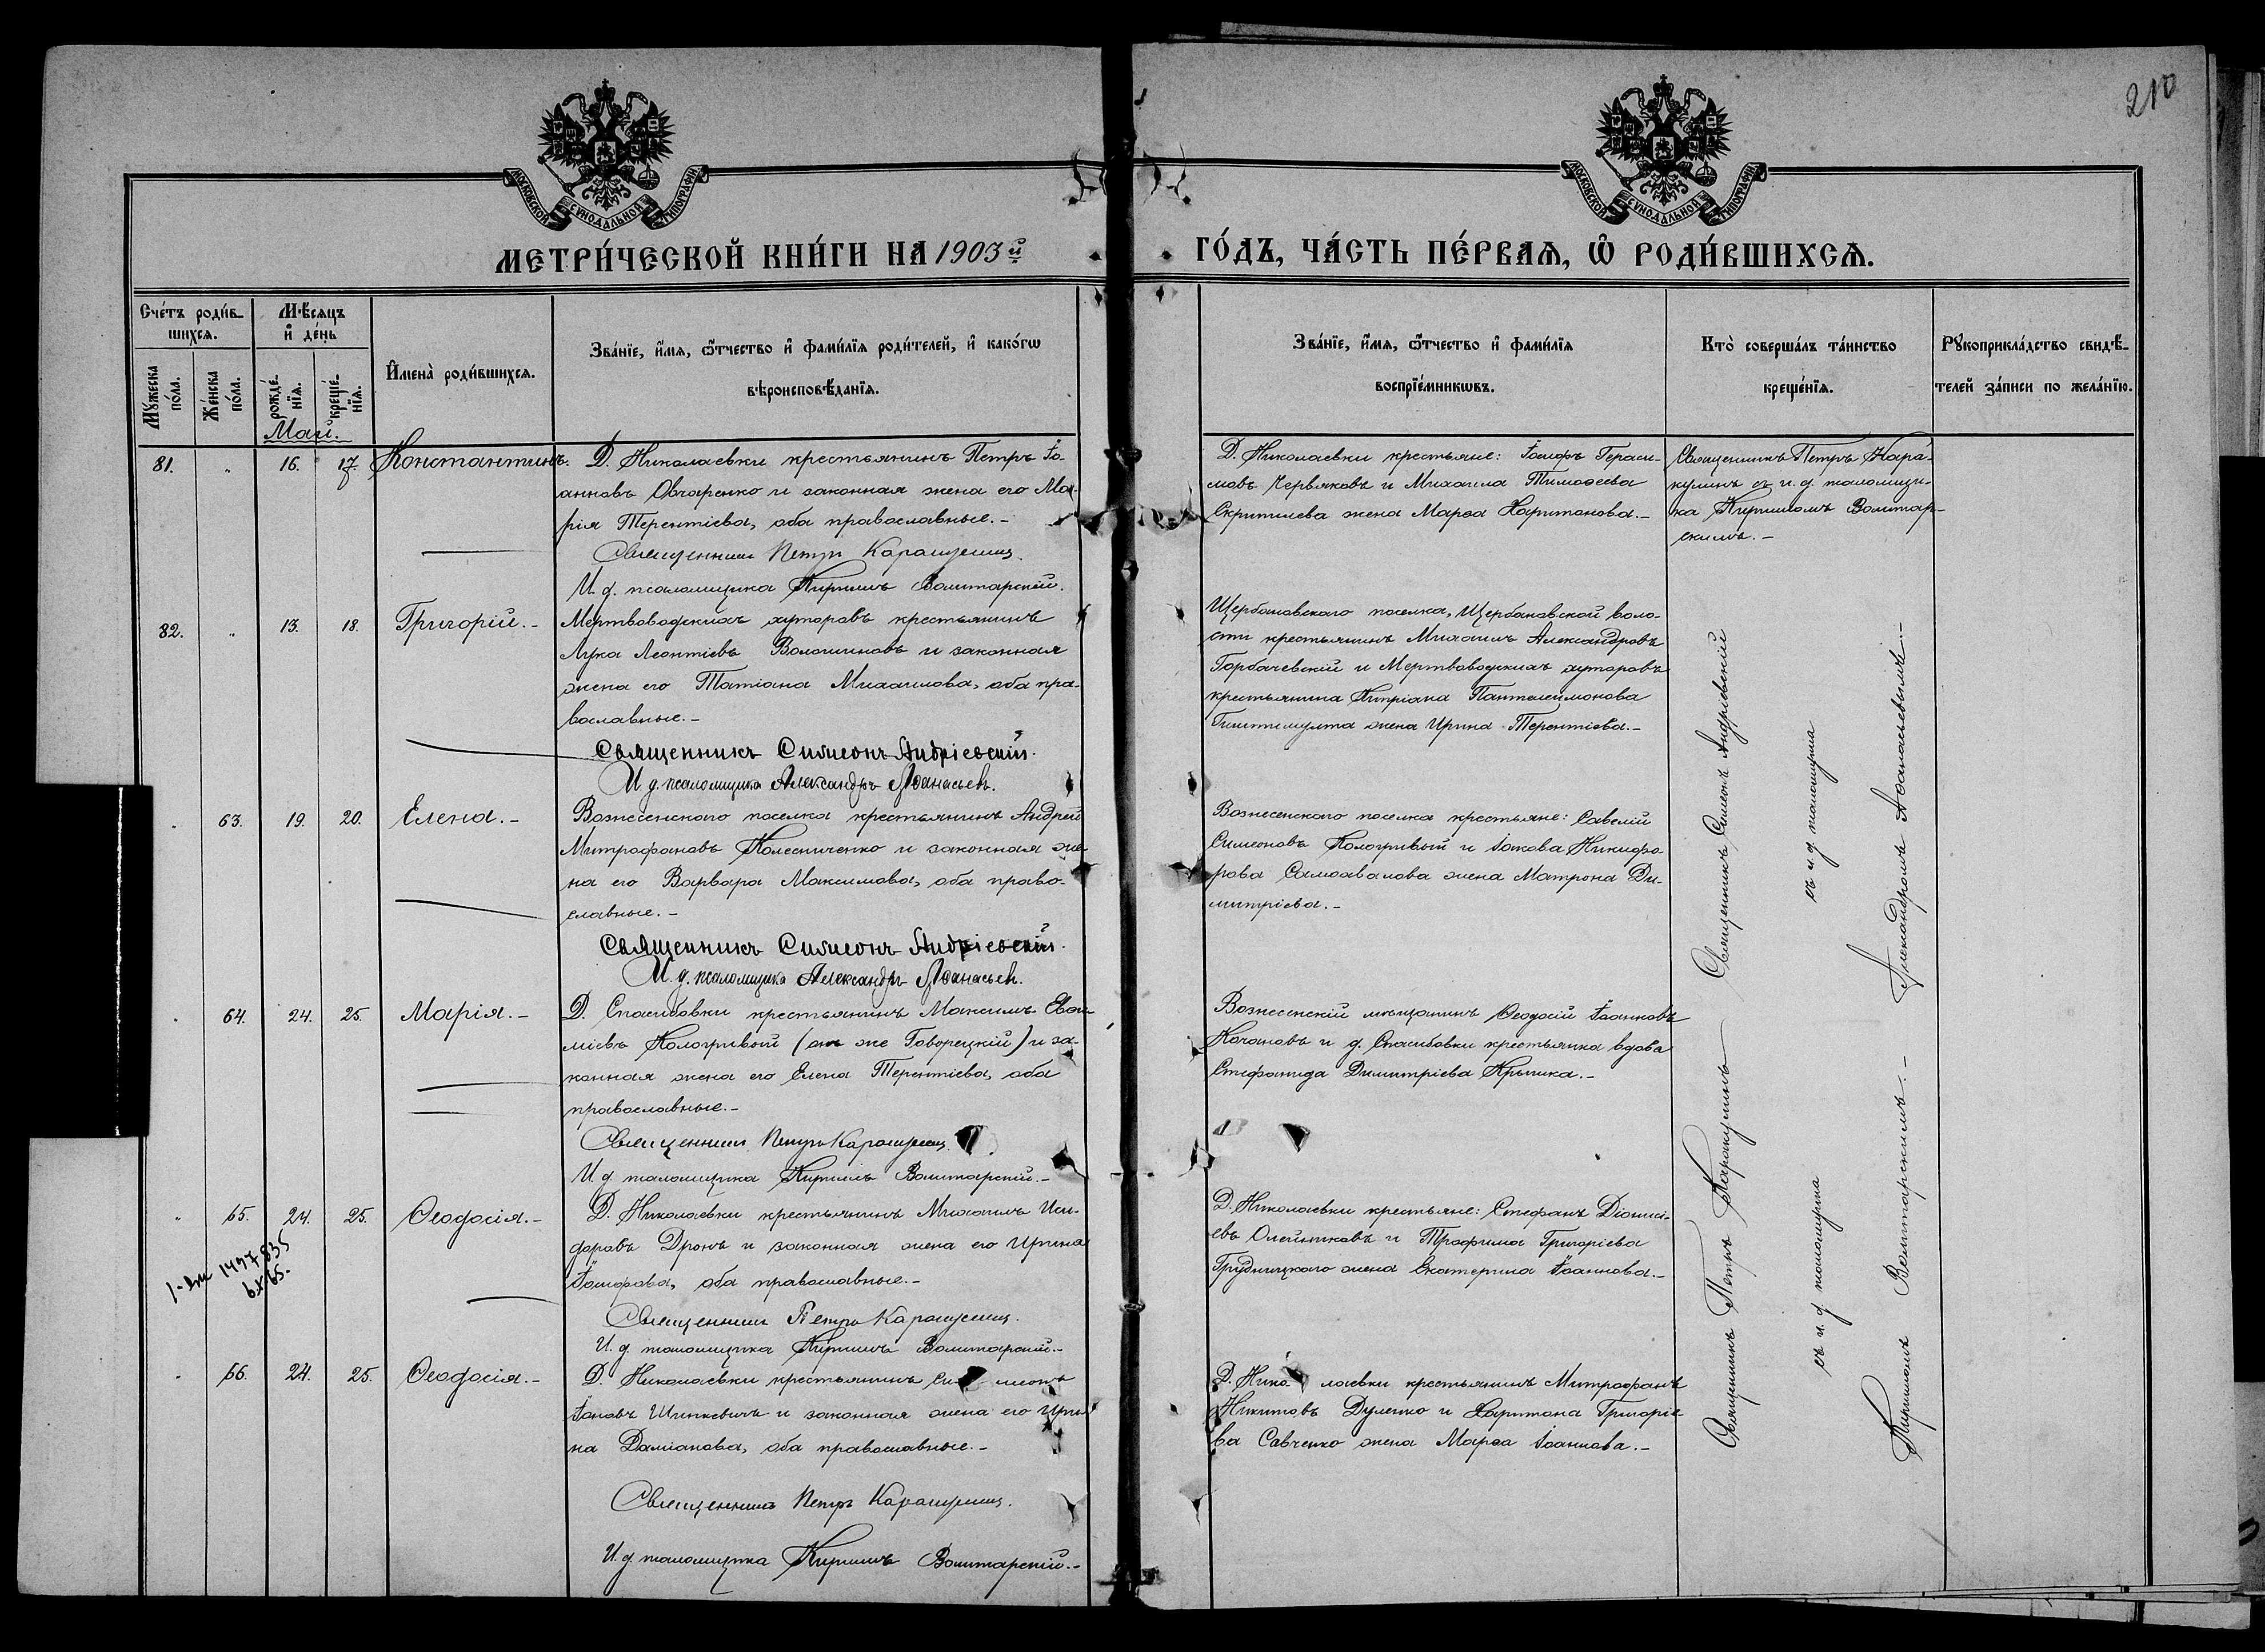 210
МОСКОВСКОЙ СѴНОДАЛЬНОЙ ТИПОГРАФІИ
МОСКОВСКОЙ СѴНОДАЛЬНОЙ ТИПОГРАФІИ
МЕТРИ́ЧЕСКОЙ КНИ́ГИ НА 1903й
ГО́ДЪ, ЧА́СТЬ ПЕ́РВАѦ, Ѽ РОДИ́ВШИХСѦ.
Сче́тъ роди́в-
шихсѧ.
Мꙋ́жеска по́ла.
Же́нска по́ла.
Мѣ́сѧцъ
и҆ де́нь
рожде́-нїѧ.
креще́-нїѧ.
И҆мена̀ роди́вшихсѧ.
Зва́нїе, и҆́мѧ, ѻ҆́тчество и҆ фами́лїѧ роди́телей, и҆ како́гѡ
вѣроисповѣ́данїѧ.
Зва́нїе, и҆́мѧ, ѻ҆́тчество и҆ фами́лїѧ
воспрїе́мникѡвъ.
Кто̀ соверша́лъ та́инство
креще́нїѧ.
Рꙋкоприкла́дство свидѣ́-
телей за́писи по жела́нїю.
Май.
81. " 16. 17. Константинъ.
Д. Николаевки крестьянинъ Петръ Іо-
анновъ Овчаренко и законная жена его Ма-
рія Терентіева, оба православные.-
Священникъ Петръ Каракулинъ.
И. д. псаломщика Кириллъ Волитарскій.
Д. Николаевки крестьяне: Іосифъ Гераси-
мовъ Червяковъ и Михаила Тимоѳеева
жена Марѳа Харитонова.-
Священникъ Петръ Кара-
кулинъ съ и. д. псаломщи-
ка Кирилломъ Волитар-
скимъ.-
82. " 13. 18. Григорій.-
Мертвоводскихъ хуторовъ крестьянинъ
Лука Леонтіевъ Волошиновъ и законная
жена его Татіана Михаилова, оба пра-
вославные.-
Священникъ Симеонъ Андріевскій.
И д. псаломщика Александръ Аѳанасьевъ.
Щербановскаго поселка, Щербановской воло-
сти крестьянинъ Михаилъ Александровъ
Горбачевскій и Мертвоводскихъ хуторовъ
крестьянина Кипріана Пантелеймонова
жена Ирина Терентіева.-
" 63. 19. 20. Елена.-
Вознесенскаго поселка крестьянинъ Андрей
Митрофановъ Колесниченко и законная же-
на его Варвара Максимова, оба право-
славные.-
Священникъ Симеонъ Андріевскій.
И. д. псаломщика Александръ Аѳанасьевъ.
Вознесенскаго поселка крестьяне: Савелій
Симеоновъ Кологривый и Іакова Никифо-
рова Самохвалова жена Матрона Ди-
митріева.-
Священникъ Симеонъ Андріевскій
съ и. д. псаломщика
Александромъ Аѳанасьевымъ.-
" 64. 24. 25. Марія.-
Д. Спасибовки крестьянинъ Максимъ Евѳи-
міевъ Кологривый (онъ же Говорецкій) и за-
конная жена его Елена Терентіева, оба
православные.-
Священникъ Петръ Каракулинъ.
И. д. псаломщика Кириллъ Волитарскій.-
Вознесенскій мѣщанинъ Ѳеодосій Іоанновъ
Кочановъ и д. Спасибовки крестьянка вдова
Стефанида Димитріева Крыпка.-
" 65. 24. 25. Ѳеодосія.-
1497835
Д. Николаевки крестьянинъ Михаилъ Иси-
доровъ Дронъ и законная жена его Ирина
Іосифова, оба православные.-
Священникъ Петръ Каракулинъ.
И. д. псаломщика Кириллъ Волитарскій.-
Д. Николаевки крестьяне: Стефанъ Діонисі-
евъ Олейниковъ и Трофима Григоріева
Грудницкаго жена Екатерина Іоаннова.-
" 66. 24. 25. Ѳеодосія.-
Д. Николаевки крестьянинъ Симеонъ
Іановъ Шинкевичъ и законная жена его Ири-
на Даміанова, оба православные.-
Священникъ Петръ Каракулинъ.
И. д. псаломщика Кириллъ Волитарскій.-
Д. Николаевки крестьянинъ Митрофанъ
Никитовъ Дуленко и Харитона Григоріе-
ва Савченко жена Марѳа Іоаннова.-
Священникъ Петръ Каракулинъ
съ и. д. псаломщика
Кирилломъ Волитарскимъ.-